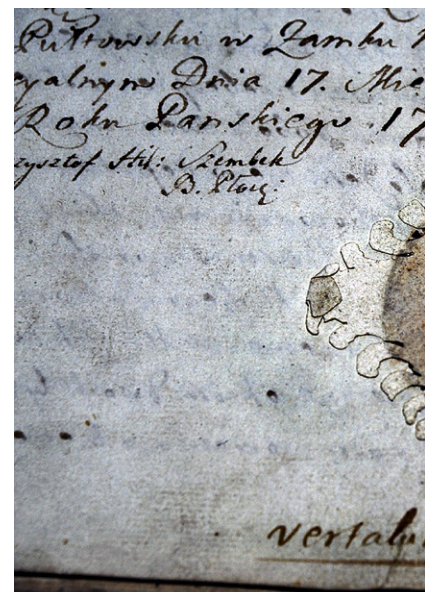 Pułtowsku w Zamku
yalnym Dnia 17. Mie
Roku Panskiego 17
zysztof Hil: Szembek
B. Płocg:
vertalu